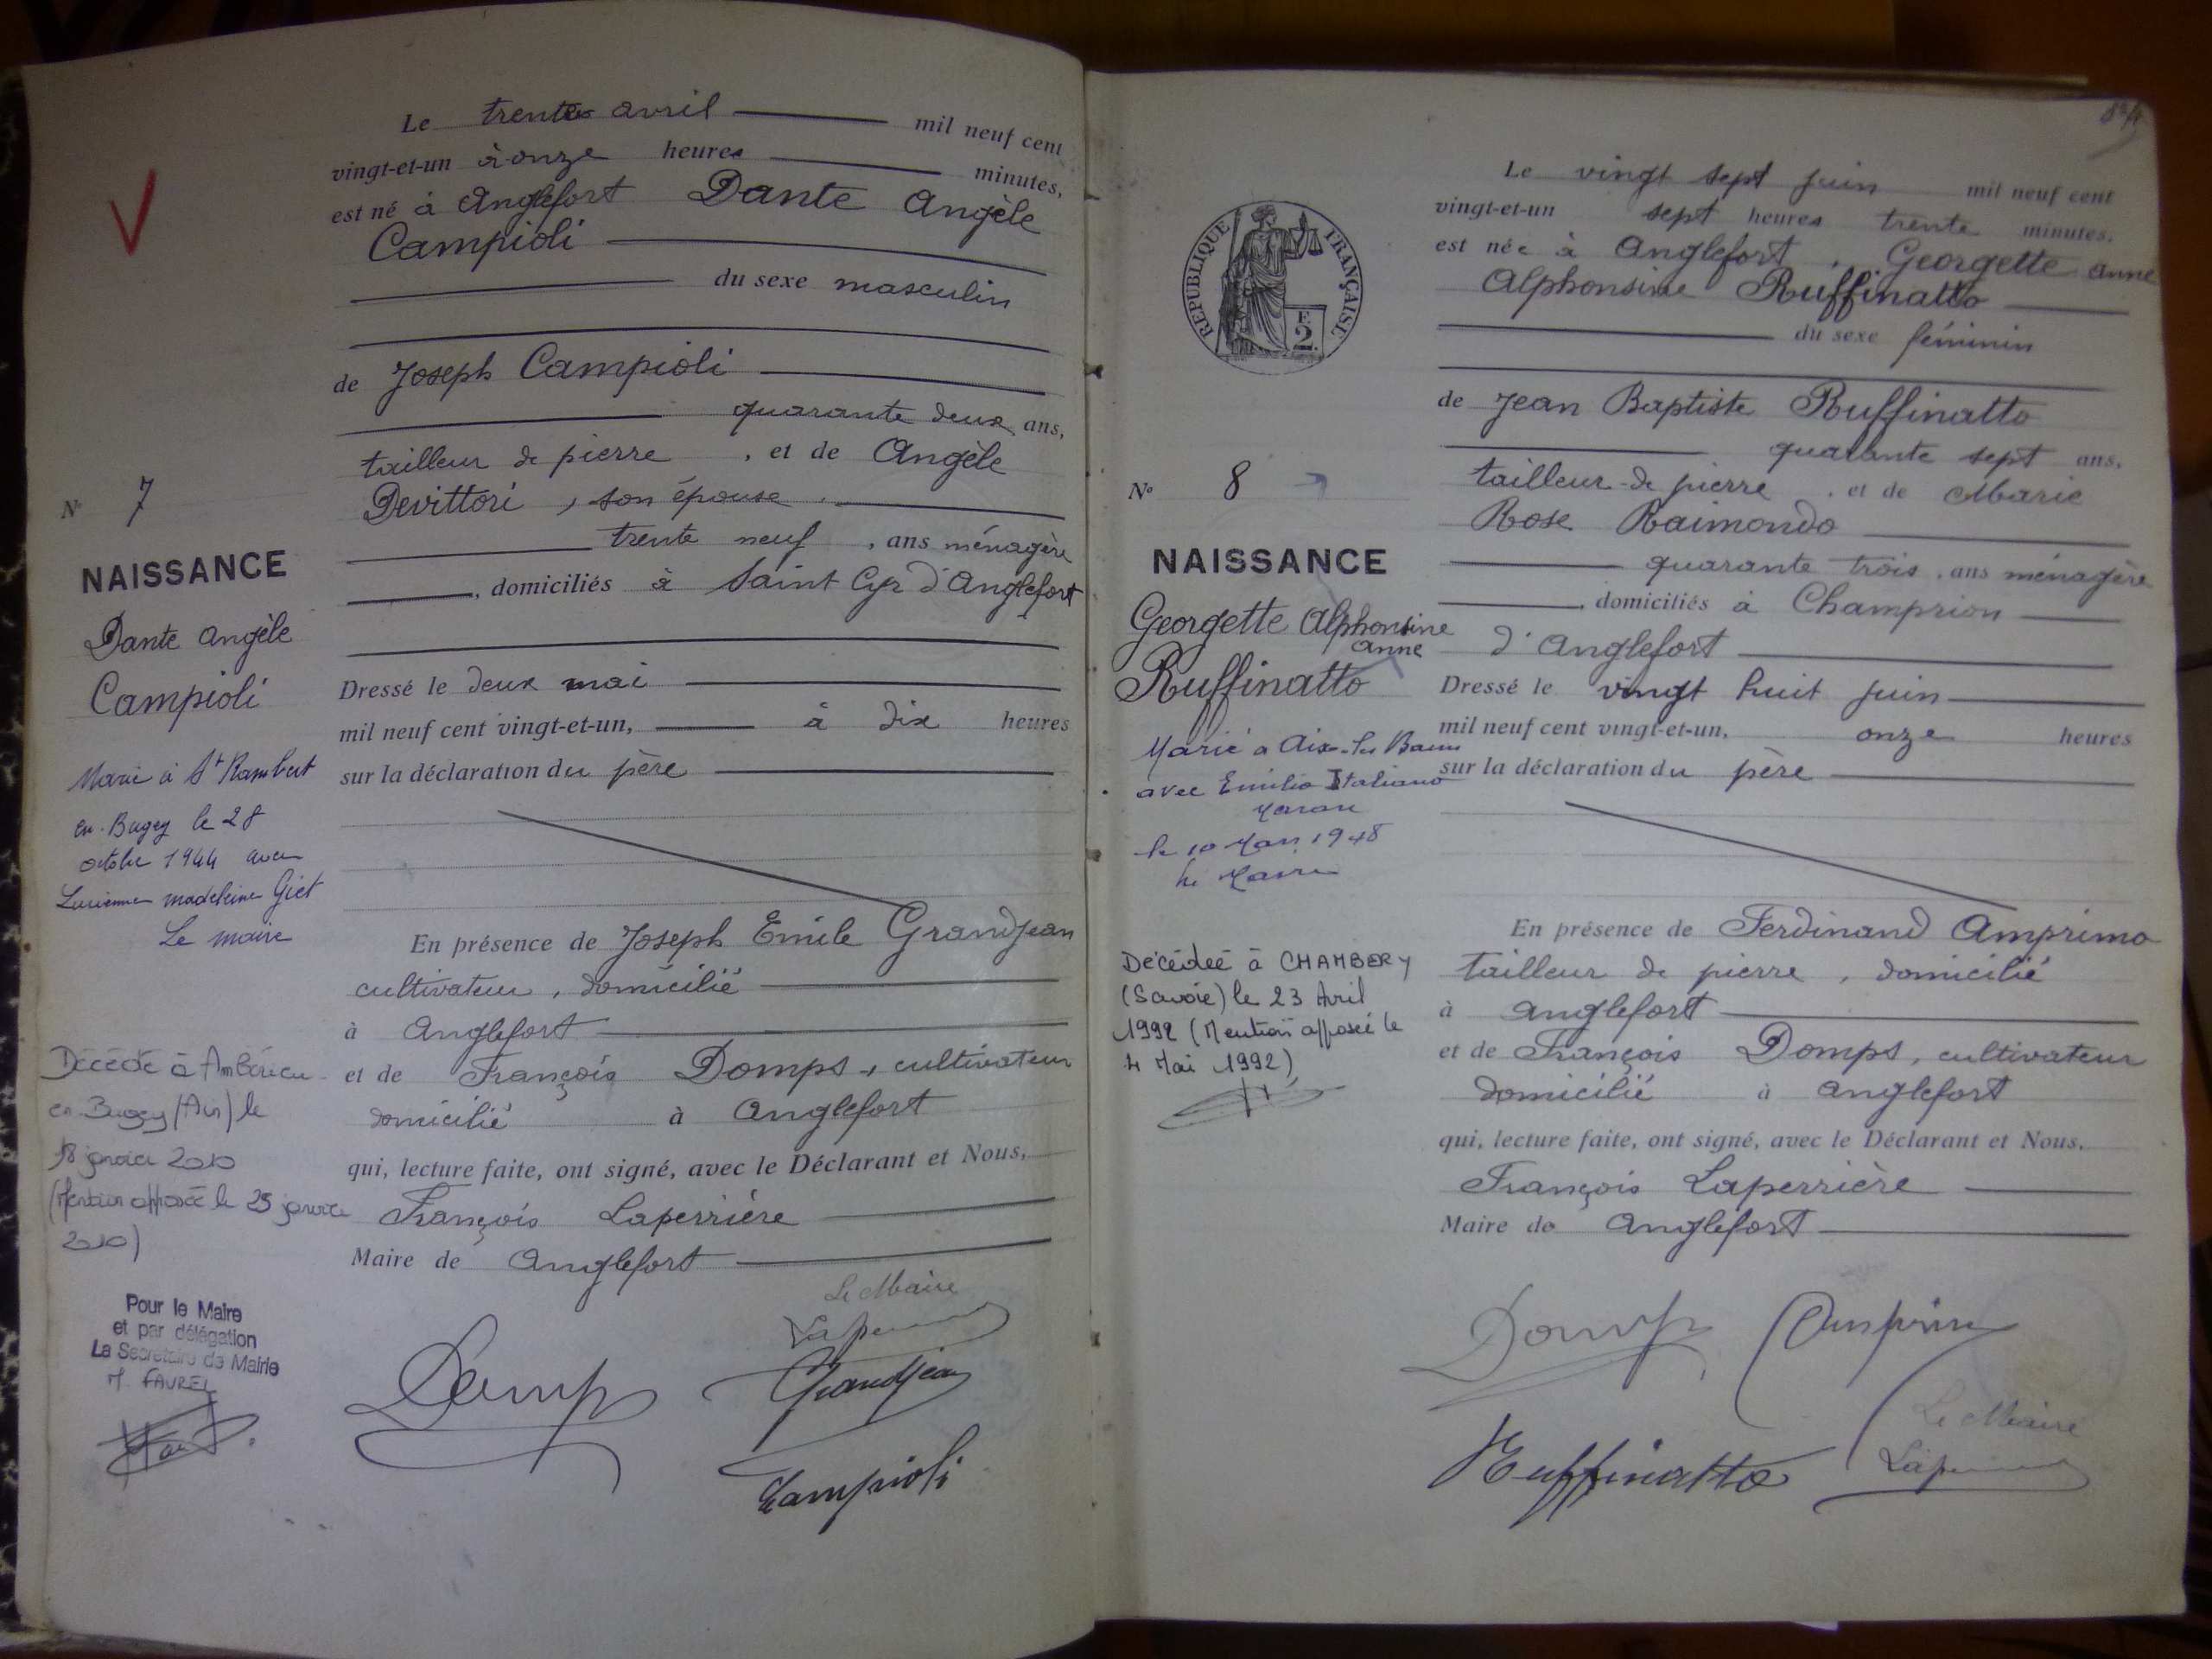 Le trente avril mil neuf cent
vingt-et-un à onze heures minutes,
est né à Anglefort Dante Angèle
Campioli
du sexe masculin
de Joseph Campioli
quarante deux ans,
tailleur de pierre , et de Angèle
Devittori , son épouse ,
trente neuf , ans ménagère
, domiciliés à Saint Cyr d'Anglefort
Dressé le deux mai
mil neuf cent vingt-et-un, à dix heures
sur la déclaration du père
En présence de Joseph Emile Grandjean
cultivateur , domicilié
à Anglefort
et de François Domps , cultivateur
domicilié à Anglefort
qui, lecture faite, ont signé, avec le Déclarant et Nous,
François Laperrière
Maire de Anglefort
Le Maire
Domps
Grandjean
Campioli
N° 7
NAISSANCE
Dante Angèle
Campioli
Marié à St Rambert
en Bugey le 28
octobre 1944 avec
Lucienne Madeleine Giet
Le maire
Décédé à Ambérieu
en Bugey (Ain) le
18 janvier 2010
(Mention apposée le 25 janvier
2010)
Pour le Maire
et par délégation
La Secrétaire de Mairie
M. FAVREL
REPUBLIQUE FRANÇAISE
F.
2
Le vingt sept juin mil neuf cent
vingt-et-un sept heures trente minutes.
est née à Anglefort , Georgette Anne
Alphonsine Ruffinatto
du sexe féminin
de Jean Baptiste Ruffinatto
quarante sept ans,
tailleur de pierre , et de Marie
Rose Raimondo
quarante trois , ans ménagère
, domiciliés à Champrion
d'Anglefort
Dressé le vingt huit juin
mil neuf cent vingt-et-un, onze heures
sur la déclaration du père
En présence de Ferdinand Amprimo
tailleur de pierre , domicilié
à Anglefort
et de François Domps , cultivateur
domicilié à Anglefort
qui, lecture faite, ont signé, avec le Déclarant et Nous,
François Laperrière
Maire de Anglefort
Domps
Ruffinatto
Le Maire
N° 8
NAISSANCE
Georgette Alphonsine
Anne
Ruffinatto
Marié à Aix-les Bains
avec Emilio Italiano
le 10 1948
le Maire
Décédée à CHAMBERY
(Savoie) le 23 Avril
1992 (Mention apposée le
4 Mai 1992)